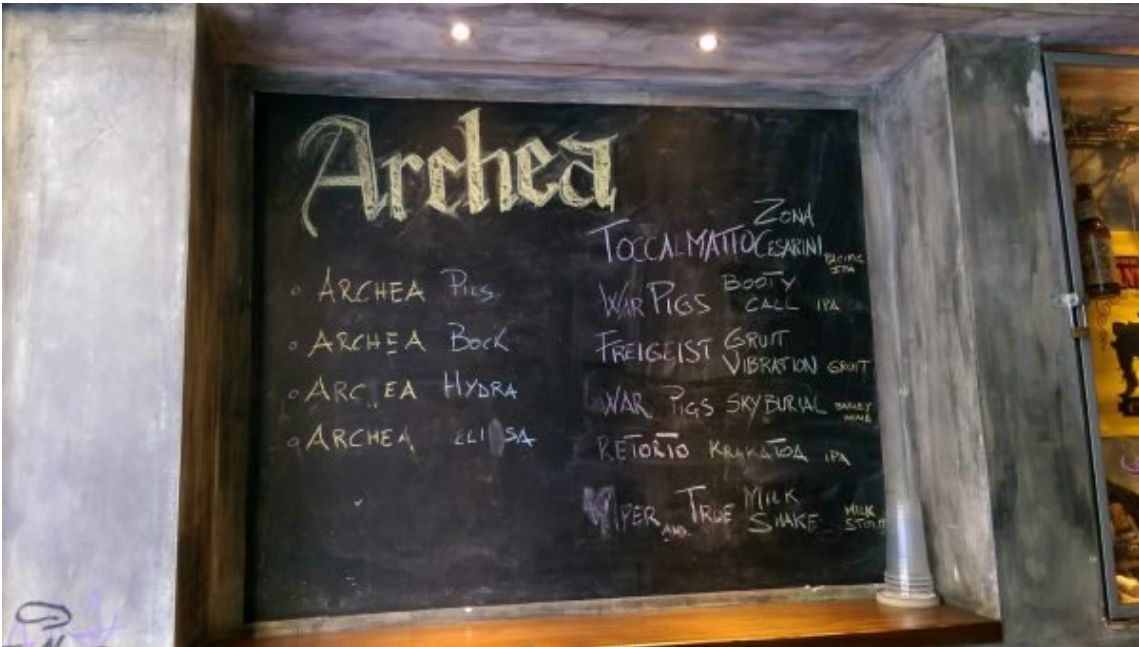 Archea
ARCHEA PILS
ARCHEA BOCK
ARC EA HYDRA
ARCHEA
TOCCALMATTO ZONA CESARINI PACIFIC IPA
WAR PIGS BOOTY CALL IPA
FREIGEIST GRUIT VIBRATION GRUIT
WAR PIGS SKY BURIAL BARLEY WINE
RETORTO KRAKATOA IPA
VIPER AND TRUE MILK SHAKE MILK STOUT